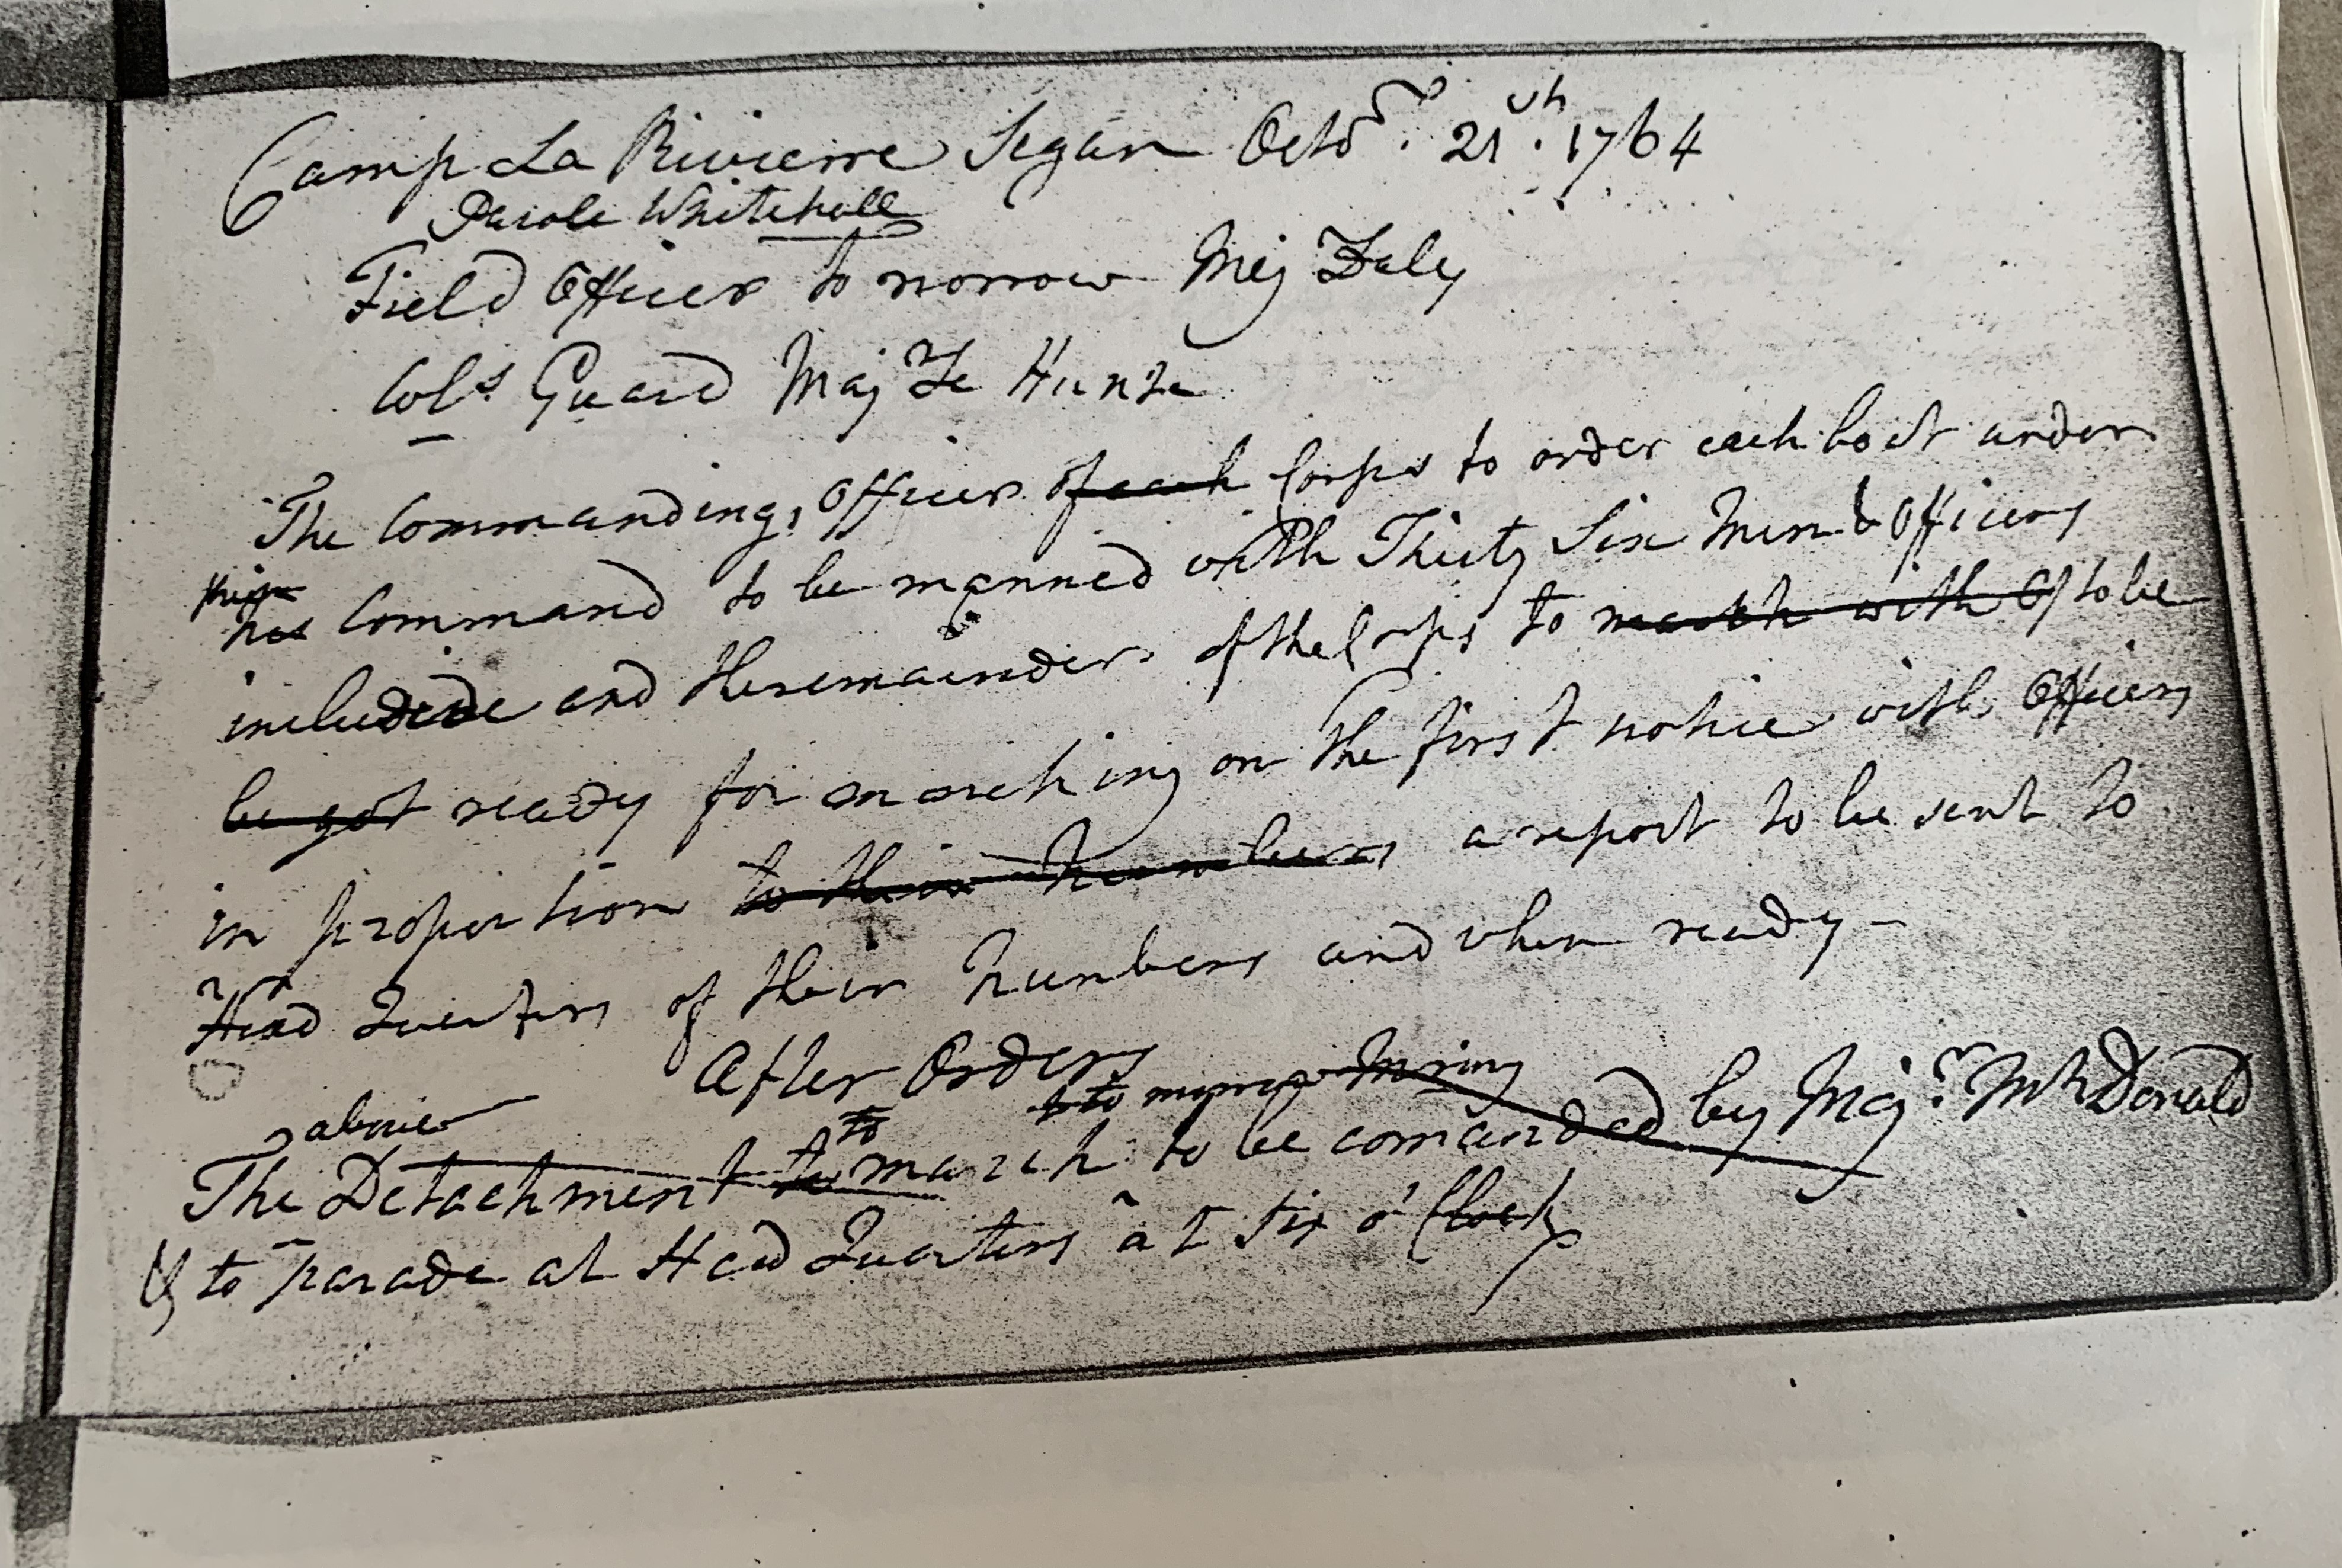 Camp La Rivierre Segan Octo͞r. 21th. 1764
Parole Whitehall
Field Officer to norrow Mej Daly
Cols Guard Maj Le Hunte
The Commanding Officer of each Corps to order each boat under
their
his Command to be manned with Thirty Six Men & Officers
includede and the remainder of the Corps to march with Of to be
be got ready for marching on the first notice with Officers
in proportion to their Numbers a report to be sent to
Head Quarters of their Numbers and when ready-
After Orders
above to to morrow Mring
The Detachment to march to be comanded by Majr McDonald
& to parade at Head Quarters at Six o' Clock